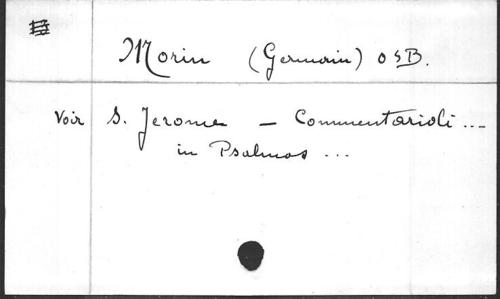 Morin (Germain) OSB.
Voir S. Jerome — Commentarioli ...
in Psalmos ...